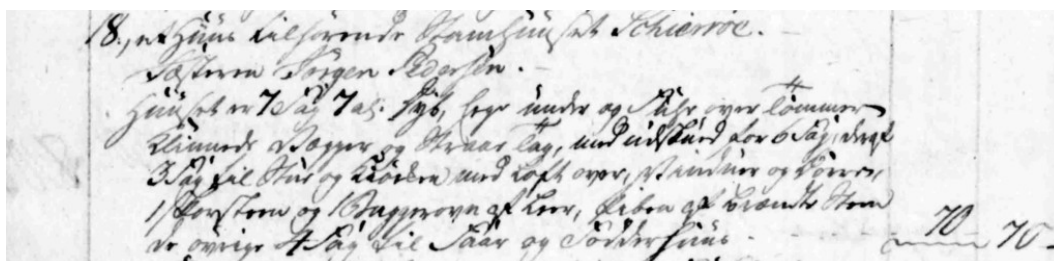 18, et Huus tilhørende Stamhuuset Schierrøe.
Fæsteren Jørgen Pedersen.
Huuset er 7 Fag 7 al: dyb, Eege under og Fyhr over Tømmer
Kliinede Vægge og Straae Tag, med udskud for 6 Fag, deraf
3 Fag til Stue og Kiøcken med Loft over, Vinduer og Dørre,
1 Skorsteen og 1 Baggerovn af Leer, Piben af brændte Steen
de øvrige 4 Fag til Faar og Fodderhuus. 70 70